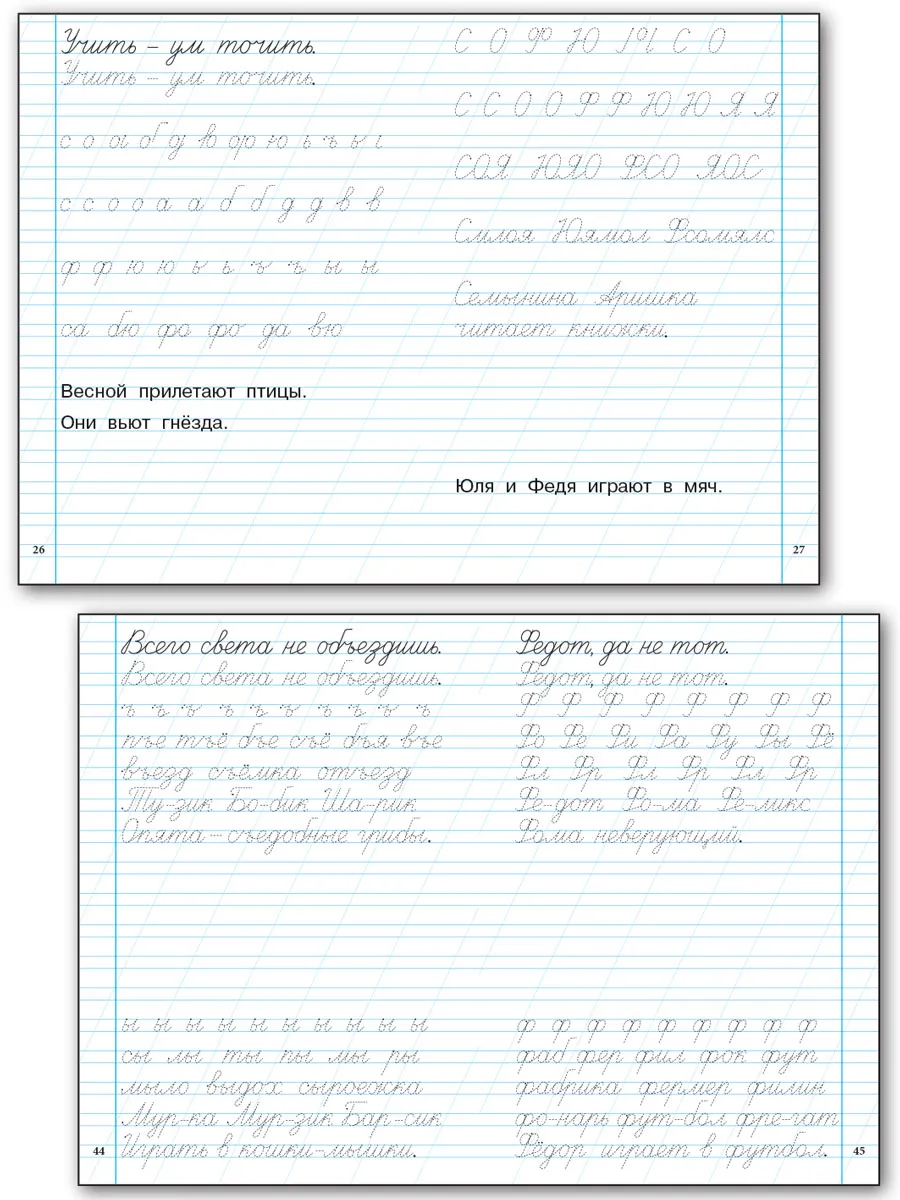 Учить – ум точить.
Учить – ум точить.
с о а б д в ф ю ь ъ ы
с с о о а а б б д д в в
ф ф ю ю ь ь ъ ъ ы ы
са бю фа фо да вю
Весной прилетают птицы.
Они вьют гнёзда.
26
С О Ф Ю Я С О
С С О О Ф Ф Ю Ю Я Я
СОЯ ЮЯО ФСО ЯОС
Силоя Юямол Фсомялс
Семынина Аришка
читает книжки.
Юля и Федя играют в мяч.
27
Всего света не объездишь.
Всего света не объездишь.
ъ ъ ъ ъ ъ ъ ъ ъ ъ ъ
пъе тъё бъе съё бъя въе
въезд съёмка отъезд
Ту-зик Бо-бик Ша-рик
Опята – съедобные грибы.
ы ы ы ы ы ы ы ы ы ы
сы лы ты пы мы ры
мыло выдох сыроежка
Мур-ка Мур-зик Бар-сик
Играть в кошки-мышки.
44
Федот, да не тот.
Федот, да не тот.
Ф Ф Ф Ф Ф Ф Ф Ф
Фо Фе Фи Фа Фу Фы Фё
Фл Фр Фл Фр Фл Фр
Фе-дот Фо-ма Фе-ликс
Фома неверующий.
ф ф ф ф ф ф ф ф ф
фаб фер фил фок фут
фабрика фермер филин
фо-нарь фут-бол фре-гат
Фёдор играет в футбол.
45